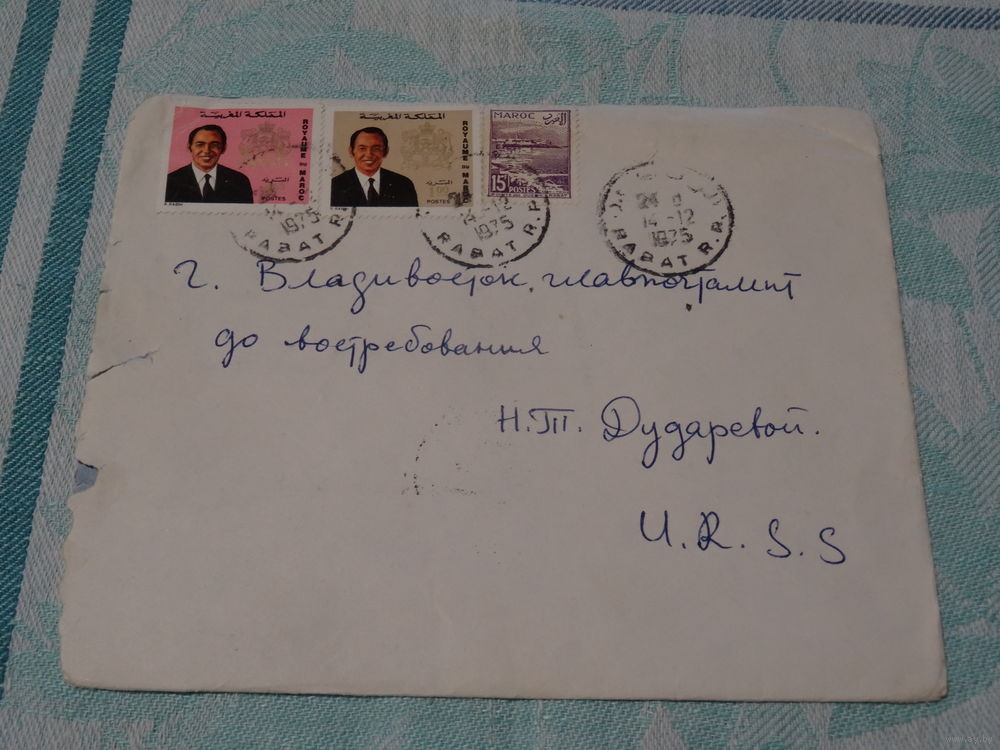 المملكة المغربية
ROYAUME DU MAROC
POSTES
المملكة المغربية
ROYAUME DU MAROC
POSTES
MAROC
15F
POSTES
1975
RABAT R.P.
14-12
1975
RABAT R.P.
14-12
1975
RABAT R.P.
г. Владивосток, главпочтамт
до востребования
Н.Т. Дударевой.
U.R.S.S